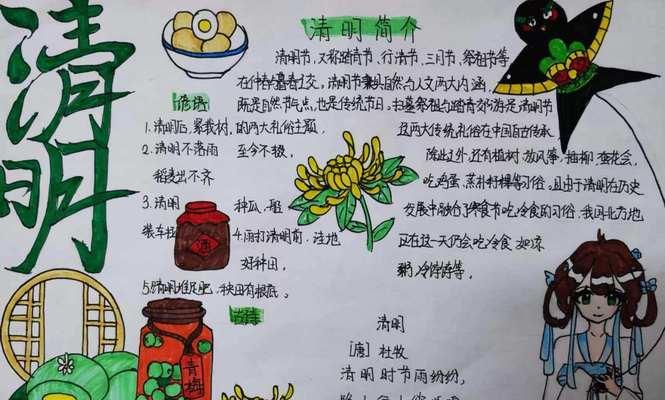 清明
清明简介
清明节,又称踏青节、行清节、三月节、祭祖节等
在仲春与暮春之交。清明节兼具自然与人文两大内涵,
既是自然节气点,也是传统节日。扫墓祭祖与踏青郊游是清明节
的两大礼俗主题,
这两大传统礼俗在中国自古传承,
除此之外,还有植树、放风筝、插柳、
吃鸡蛋、蒸朴籽粿等习俗。且由于清明在历史
发展中融合了寒食节吃冷食的习俗,我国北方地
正在这一天仍会吃冷食,如凉
粥、冷饽饽等。
谚语
1.清明后,
2.清明不落雨
至今不移,
稻
出不齐
3.清明
种瓜,
装车
4.雨打清明前,洼地
好种田。
5.清明堆泥肥,秧田有根底。
酒
青梅
清明
[唐]杜牧
清明时节雨纷纷,